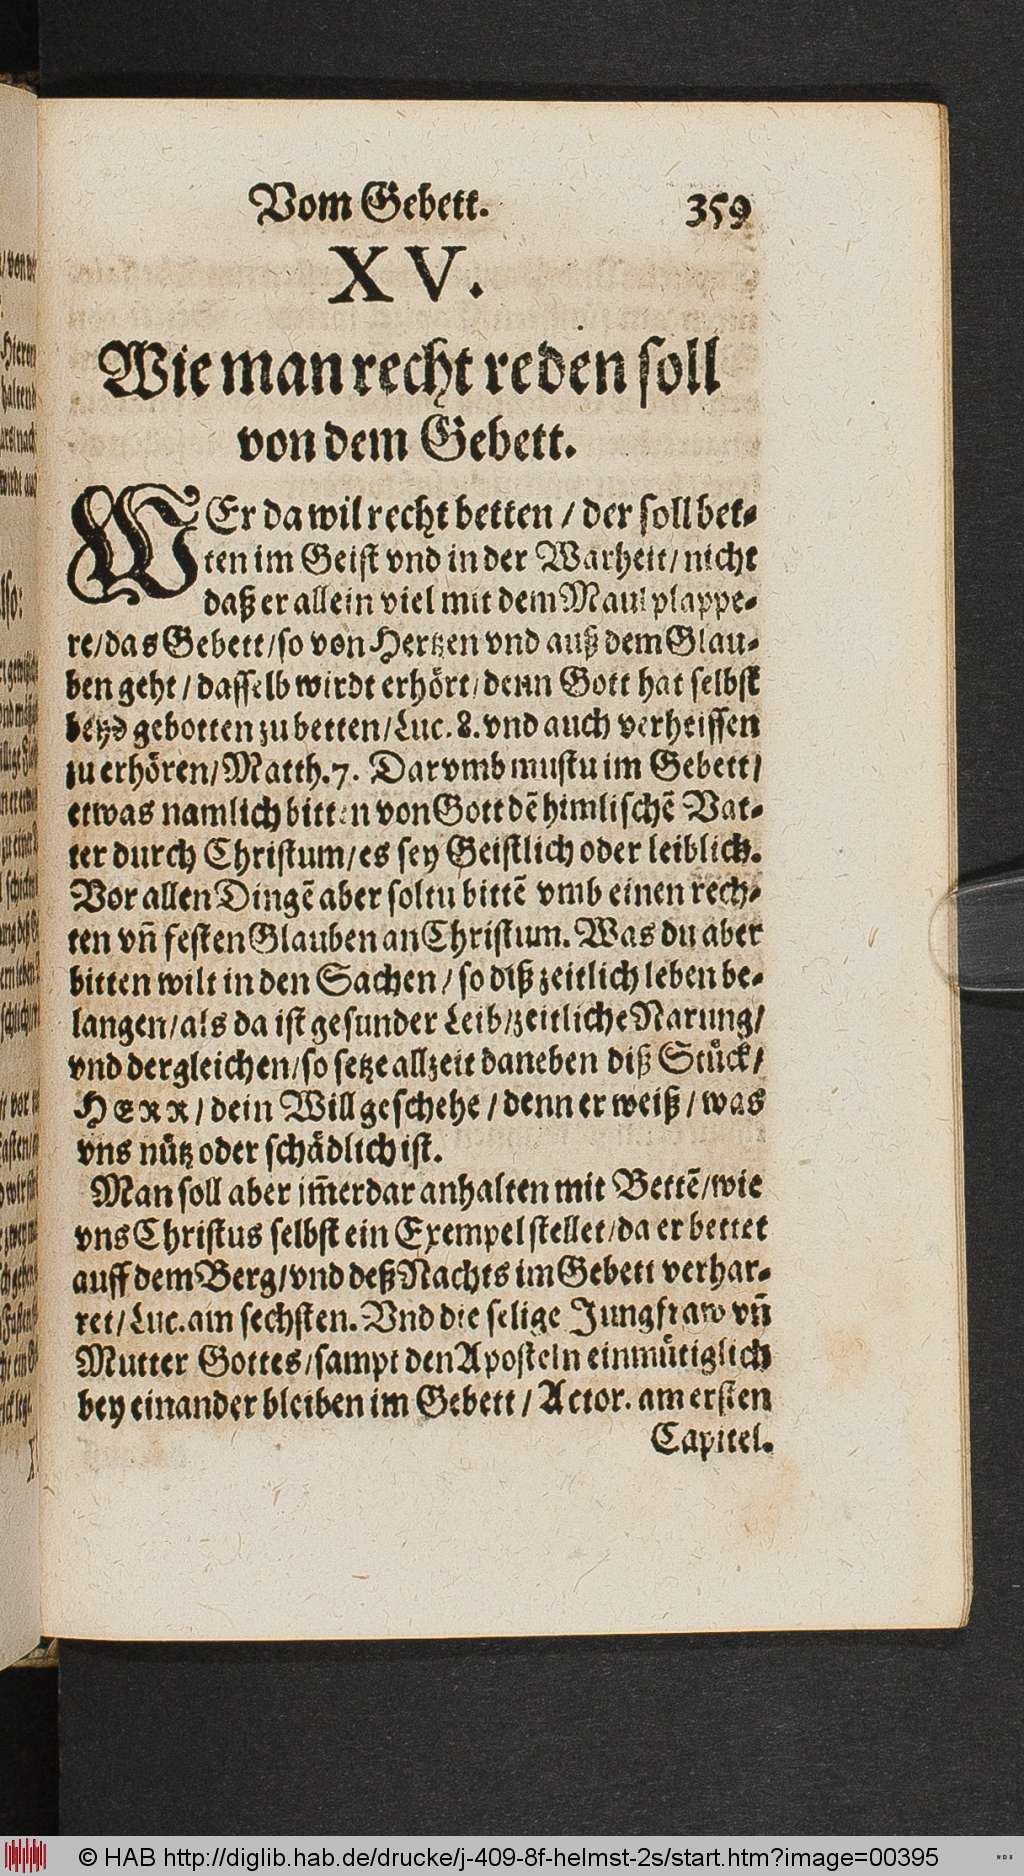 Vom Gebett. 359
XV.
Wie man recht reden soll
von dem Gebett.
WEr da wil recht betten / der soll bet⸗
ten im Geist vnd in der Warheit / nicht
daß er allein viel mit dem Maul plappe⸗
re / das Gebett / so von Hertzen vnd auß dem Glau⸗
ben geht / dasselb wirdt erhört / denn Gott hat selbst
gebotten zu betten / Luc. 8. vnd auch verheissen
zu erhören / Matth. 7. Darvmb mustu im Gebett /
etwas namlich bitten von Gott dē himlischē Vat⸗
ter durch Christum / es sey Geistlich oder leiblich.
Vor allen Dingē aber soltu bittē vmb einen rech⸗
ten vn̄ festen Glauben an Christum. Was du aber
bitten wilt in den Sachen / so diß zeitlich leben be⸗
langen / als da ist gesunder Leib / zeitliche Narung /
vnd dergleichen / so setze allzeit daneben diß Stück /
HERR / dein Will geschehe / denn er weiß / was
vns nütz oder schädlich ist.
Man soll aber im̄erdar anhalten mit Bettē / wie
vns Christus selbst ein Exempel stellet / da er bettet
auff dem Berg / vnd deß Nachts im Gebett verhar⸗
ret / Luc. am sechsten. Vnd die selige Jungfraw vn̄
Mutter Gottes / sampt den Aposteln einmütiglich
bey einander bleiben im Gebett / Actor. am ersten
Capitel.
© HAB http://diglib.hab.de/drucke/j-409-8f-helmst-2s/start.htm?image=00395